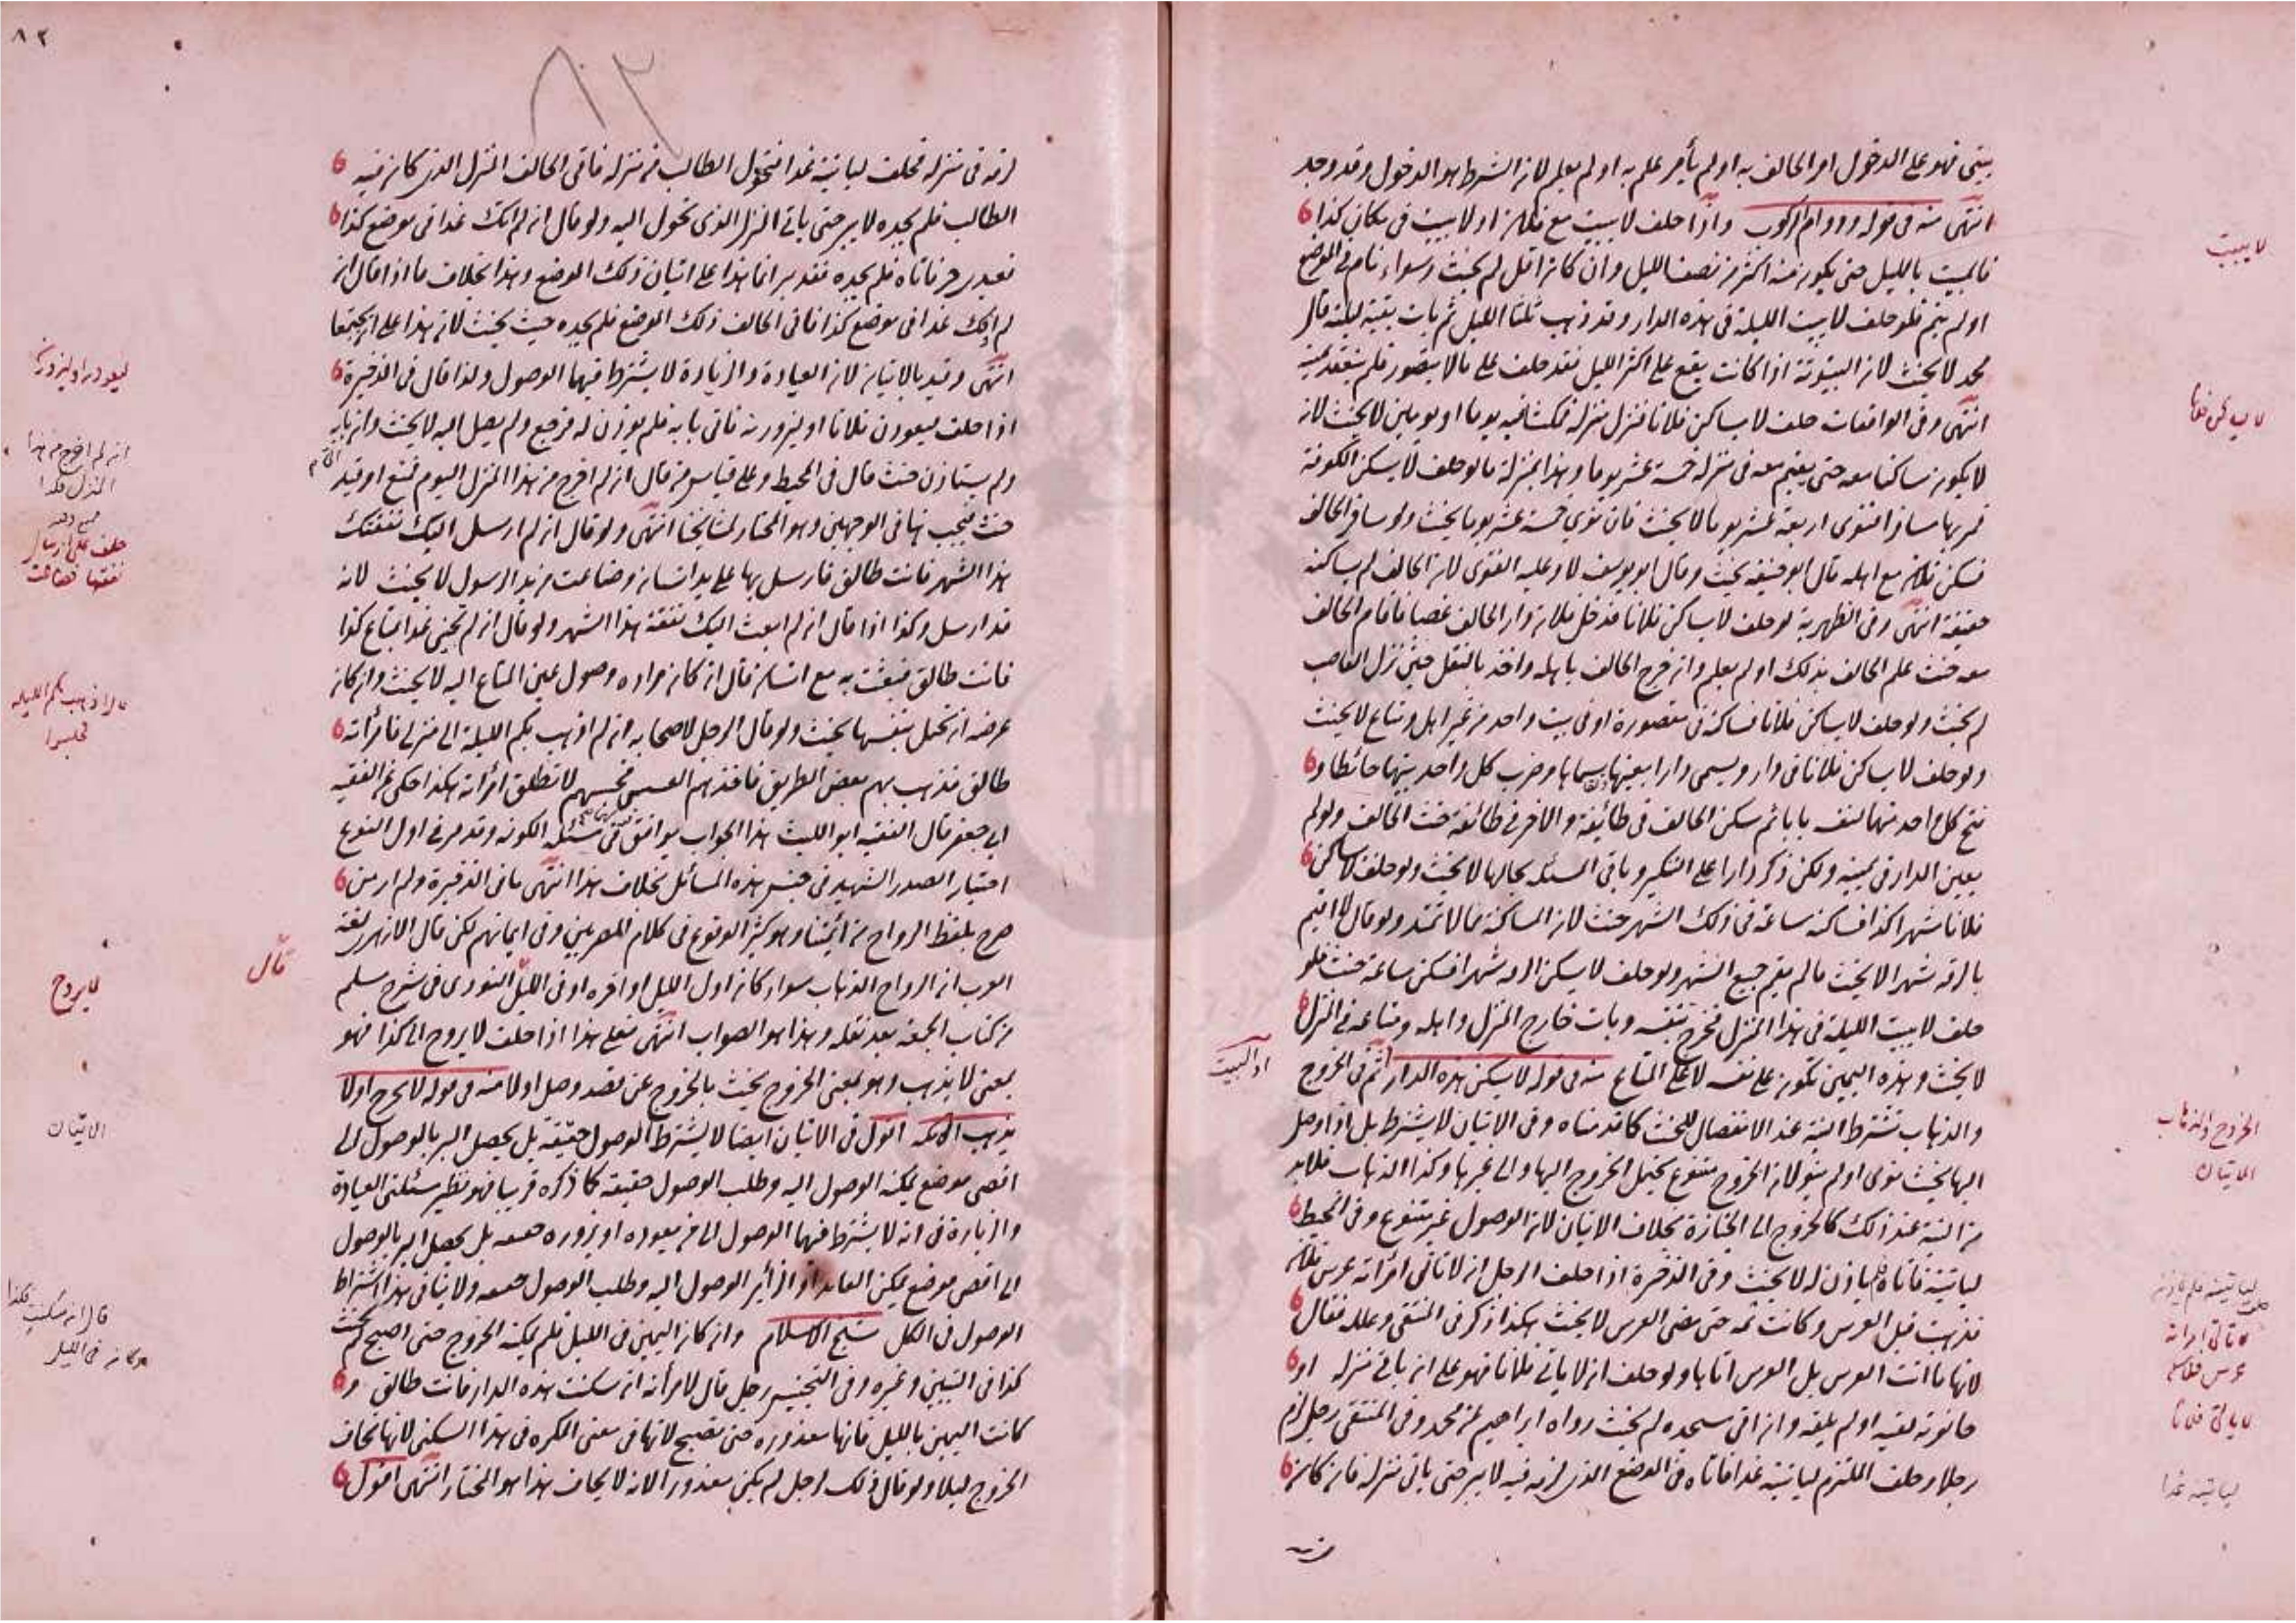 بيتي فهو على الدخول امر الحالف به او لم يأمر علم به او لم يعلم لان الشرط هو الدخول وقد وجد
انتهى منه في قوله ودوام الركوب واذا حلف لا يبيت مع فلان او لا يبيت في مكان كذا
فالمبيت بالليل حتى يكون منه اكثر من نصف الليل وان كان اقل لم يحنث وسواء نام في الموضع
او لم ينم فلو حلف لا يبيت الليلة في هذه الدار وقد ذهب ثلثا الليل ثم بات بقية ليلته قال
محمد لا يحنث لان البيتوتة اذا كانت يقع على اكثر الليل فقد حلف على ما لا يتصور فلم ينعقد يمينه
انتهى وفي الواقعات حلف لا يساكن فلانا فنزل منزله فمكثا فيه يوما او يومين لا يحنث لانه
لا يكون مساكنا معه حتى يقيم معه في منزله خمسة عشر يوما وهذا بمنزلة ما لو حلف لا يسكن الكوفة
فمر بها مسافرا فنوى اربعة عشر يوما لا يحنث فان نوى خمسة عشر يوما يحنث ولو سافر الحالف
فسكن فلان مع اهله قال ابو حنيفة يحنث وقال ابو يوسف لا وعليه الفتوى لان الحالف لم يساكنه
حقيقة انتهى وفي الظهيرية لو حلف لا يساكن فلانا فدخل فلان دار الحالف غصبا فاقام الحالف
معه حنث علم الحالف بذلك او لم يعلم وان خرج الحالف باهله واخذ بالنقل حين نزل الغاصب
لم يحنث ولو حلف لا يساكن فلانا فساكنه في مقصورة او في بيت واحد من غير اهل ومتاع لا يحنث
ولو حلف لا يساكن فلانا في دار ويسمى دارا بعينها وضرب كل واحد بينهما حائطا و
فتح كل واحد منهما لنفسه بابا ثم سكن الحالف في طائفة والاخر في طائفة حنث الحالف ولو لم
يعين الدار في يمينه ولكن ذكر دارا على التنكير وباقي المسئلة بحالها لا يحنث ولو حلف لا يساكن
فلانا شهر كذا فساكنه ساعة في ذلك الشهر حنث لان المساكنة مما لا تمتد ولو قال لا اقيم
بالرقة شهرا لا يحنث ما لم يقم جميع الشهر ولو حلف لا يسكن الرقة شهرا فسكن ساعة حنث فلو
حلف لا يبيت الليلة في هذا المنزل فخرج بنفسه وبات خارج المنزل واهله ومتاعه في المنزل
لا يحنث وهذه اليمين تكون على نفسه لا على المتاع منه في قوله لا يسكن هذه الدار ثم في الخروج
والذهاب تشترط النية عند الانفصال للحنث كما قدمناه وفي الاتيان لا يشترط بل اذا وصل
اليها يحنث نوى او لم ينو لان الخروج متنوع يحتمل الخروج اليها والى غيرها وكذا الذهاب فلابد
من النية عند ذلك كالخروج الى الجنازة بخلاف الاتيان لان الوصول غير متنوع وفي المحيط
لياتينه فاتاه فلم ياذن له لا يحنث وفي الذخيرة اذا حلف الرجل ان لا تاتي امرأته عرس فلان
فذهبت قبل العرس وكانت ثمة حتى مضى العرس لا يحنث هكذا ذكر في المنتقى وعلله فقال
لانها ما اتت العرس بل العرس اتاها ولو حلف ان لا ياتي فلانا فهو على ان ياتي منزله او
حانوته لقيه او لم يلقه وان اتى مسجده لم يحنث رواه ابراهيم عن محمد وفي المنتقى رجل لزم
رجلا وحلف الملتزم لياتينه غدا فاتاه في الموضع الذي لزمه فيه لا يبر حتى ياتي منزله فان كان
لا يبيت
لا يساكن فلانا
او البيت
الخروج والذهاب
الاتيان
لياتينه فلم ياذن
لا تاتي امرأته
عرس فلان
لا ياتي فلانا
لياتينه غدا
٨٢
٨٢
لزمه في منزله فحلف لياتينه غدا فتحول الطالب من منزله فاتى الحالف المنزل الذي كان فيه
الطالب فلم يجده لا يبر حتى ياتي المنزل الذي تحول اليه ولو قال ان لم اتك غدا في موضع كذا
فعبدي حر فاتاه فلم يجده فقد بر انما هذا على اتيان ذلك الموضع وهذا بخلاف ما اذا قال ان
لم اوافك غدا في موضع كذا فاتى الحالف ذلك الموضع فلم يجده حيث يحنث لان هذا على ان يجتمعا
انتهى وقيد بالاتيان لان العيادة والزيارة لا يشترط فيهما الوصول ولذا قال في الذخيرة
اذا حلف ليعودن فلانا او ليزورنه فاتى بابه فلم يوذن له فرجع ولم يصل اليه لا يحنث وان اتى بابه
ولم يستاذن حنث قال في المحيط وعلى قياس من قال ان لم اخرج من هذا المنزل اليوم فمنع او قيد
حنث فيجب هنا في الوجهين وهو المختار لمشايخنا انتهى ولو قال ان لم ارسل اليك نفقتك
هذا الشهر فانت طالق فارسل بها على يد انسان وضاعت من يد الرسول لا يحنث لانه
قد ارسل وكذا اذا قال ان لم ابعث اليك نفقة هذا الشهر ولو قال ان لم تجئني غدا بمتاع كذا
فانت طالق فبعثت به مع انسان قال ان كان مراده وصول عين المتاع اليه لا يحنث وان كان
غرضه ان تحمل بنفسها يحنث ولو قال الرجل لاصحابه ان لم اذهب بكم الليلة الى منزلي فامرأته
طالق فذهب بهم بعض الطريق فاخذهم العسس فحبسهم لا تطلق امرأته هكذا حكي عن الفقيه
ابي جعفر قال الفقيه ابو الليث هذا الجواب يوافق مسئلة الكوفة وقد مر في اول النوع
اختيار الصدر الشهيد في جنس هذه المسائل بخلاف هذا انتهى ما في الذخيرة ولم ار من
صرح بلفظ الرواح من ائمتنا وهو كثير الوقوع في كلام المصريين وفي ايمانهم لكن قال الازهري لغة
العرب ان الرواح الذهاب سواء كان اول الليل او اخره او في الليل النووي في شرح مسلم
من كتاب الجمعة بعد نقله وهذا هو الصواب انتهى فعلى هذا اذا حلف لا يروح الى كذا فهو
بمعنى لا يذهب وهو بمعنى الخروج يحنث بالخروج عن قصد وصل اولا منه في قوله لا يخرج او لا
يذهب الى مكة اقول في الاتيان ايضا لا يشترط الوصول حقيقة بل يحصل البر بالوصول الى
اقصى موضع يمكنه الوصول اليه وطلب الوصول حقيقة كما ذكره قريبا فهو نظير مسئلتي العيادة
والزيارة في انه لا يشترط فيهما الوصول الى من يعوده او يزوره حقيقة بل يحصل البر بالوصول
الى اقصى موضع يمكن العايد او الزائر الوصول اليه وطلب الوصول حقيقة ولا ينافي هذا اشتراط
الوصول في الكل شيخ الاسلام وان كان اليمين في الليل فلم يمكنه الخروج حتى اصبح لم يحنث
كذا في التبيين وغيره وفي التجنيس رجل قال لامرأته ان سكنت هذه الدار فانت طالق و
كانت اليمين بالليل فانها معذورة حتى تصبح لانها في معنى المكره في هذا السكنى لانها تخاف
الخروج ليلا ولو قال ذلك لرجل لم يكن معذورا لانه لا يخاف هذا هو المختار انتهى اقول
ليعودنه او ليزورنه
ان لم اخرج من هذا
المنزل
حلف على ارسال
نفقتها فضاعت
ان لم اذهب بكم الليلة
فحبسوا
قال
لا يروح
الاتيان
قال ان سكنت هكذا
وكانه في الليل